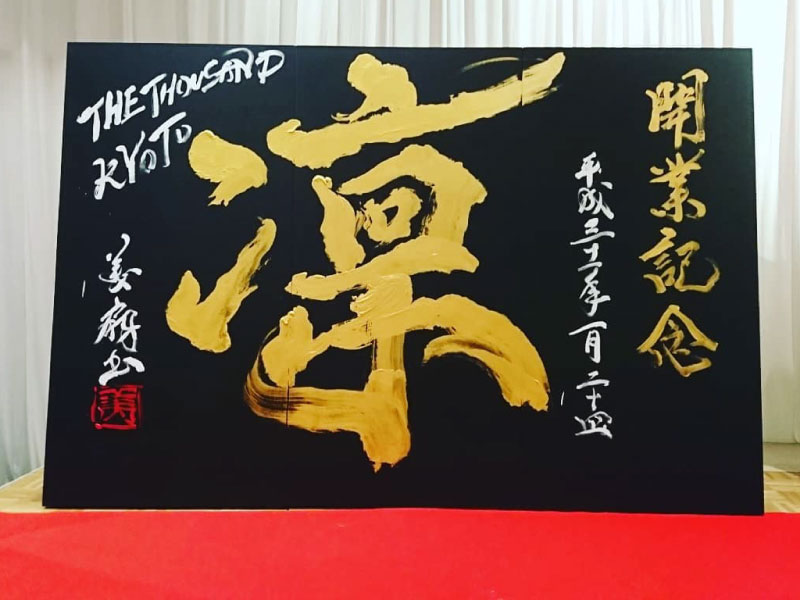 開業記念
平成三十一年一月二十四
凛
THE THOUSAND
KYOTO